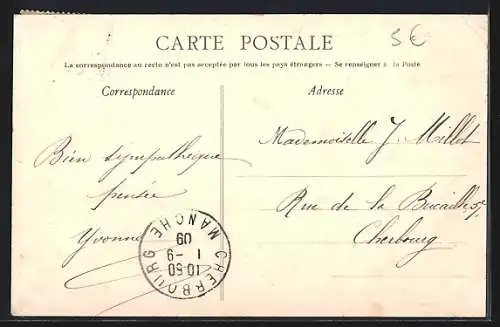 5€
CARTE POSTALE
La correspondance au recto n'est pas acceptée par tous les pays étrangers — Se renseigner à la Poste
Correspondance
Adresse
Bien sympathique
pensée
Yvonne
Mademoiselle J. Millot
Rue de la Bucaille
Cherbourg
CHERBOURG
MANCHE
10·50
1 -9
09